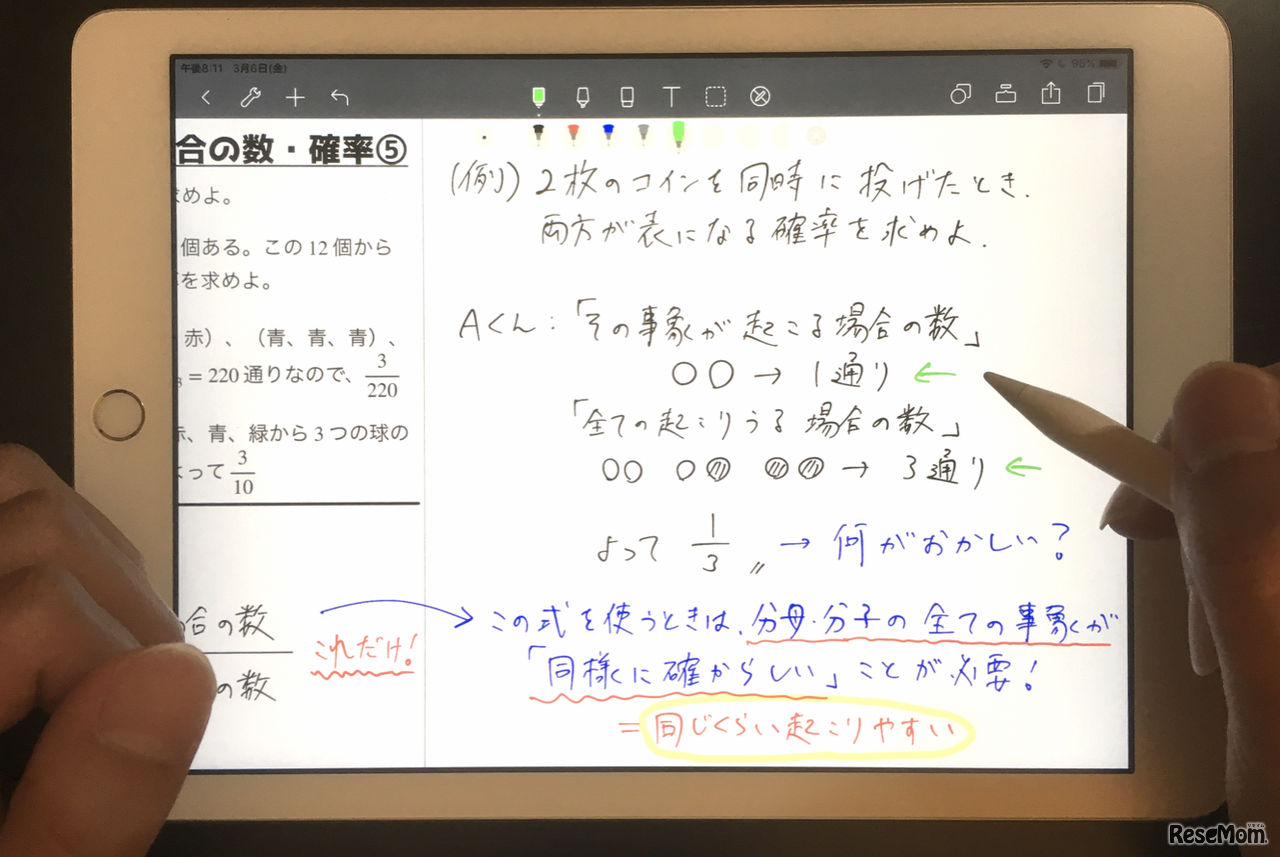 午後8:11 3月6日(金)
95%
合の数・確率⑤
求めよ。
個ある。この12個から
を求めよ。
赤）、（青、青、青）、
₃ = 220 通りなので、3/220
赤、青、緑から3つの球の
よって 3/10
合の数
の数
これだけ!
(例) 2枚のコインを同時に投げたとき.
両方が表になる確率を求めよ.
Aくん:「その事象が起こる場合の数」
○○ → 1通り ←
「全ての起こりうる場合の数」
→ 3通り ←
よって 1/3 〃 → 何がおかしい?
この式を使うときは、分母・分子の全ての事象が
「同様に確からしい」ことが必要!
= 同じくらい起こりやすい
ReseMom